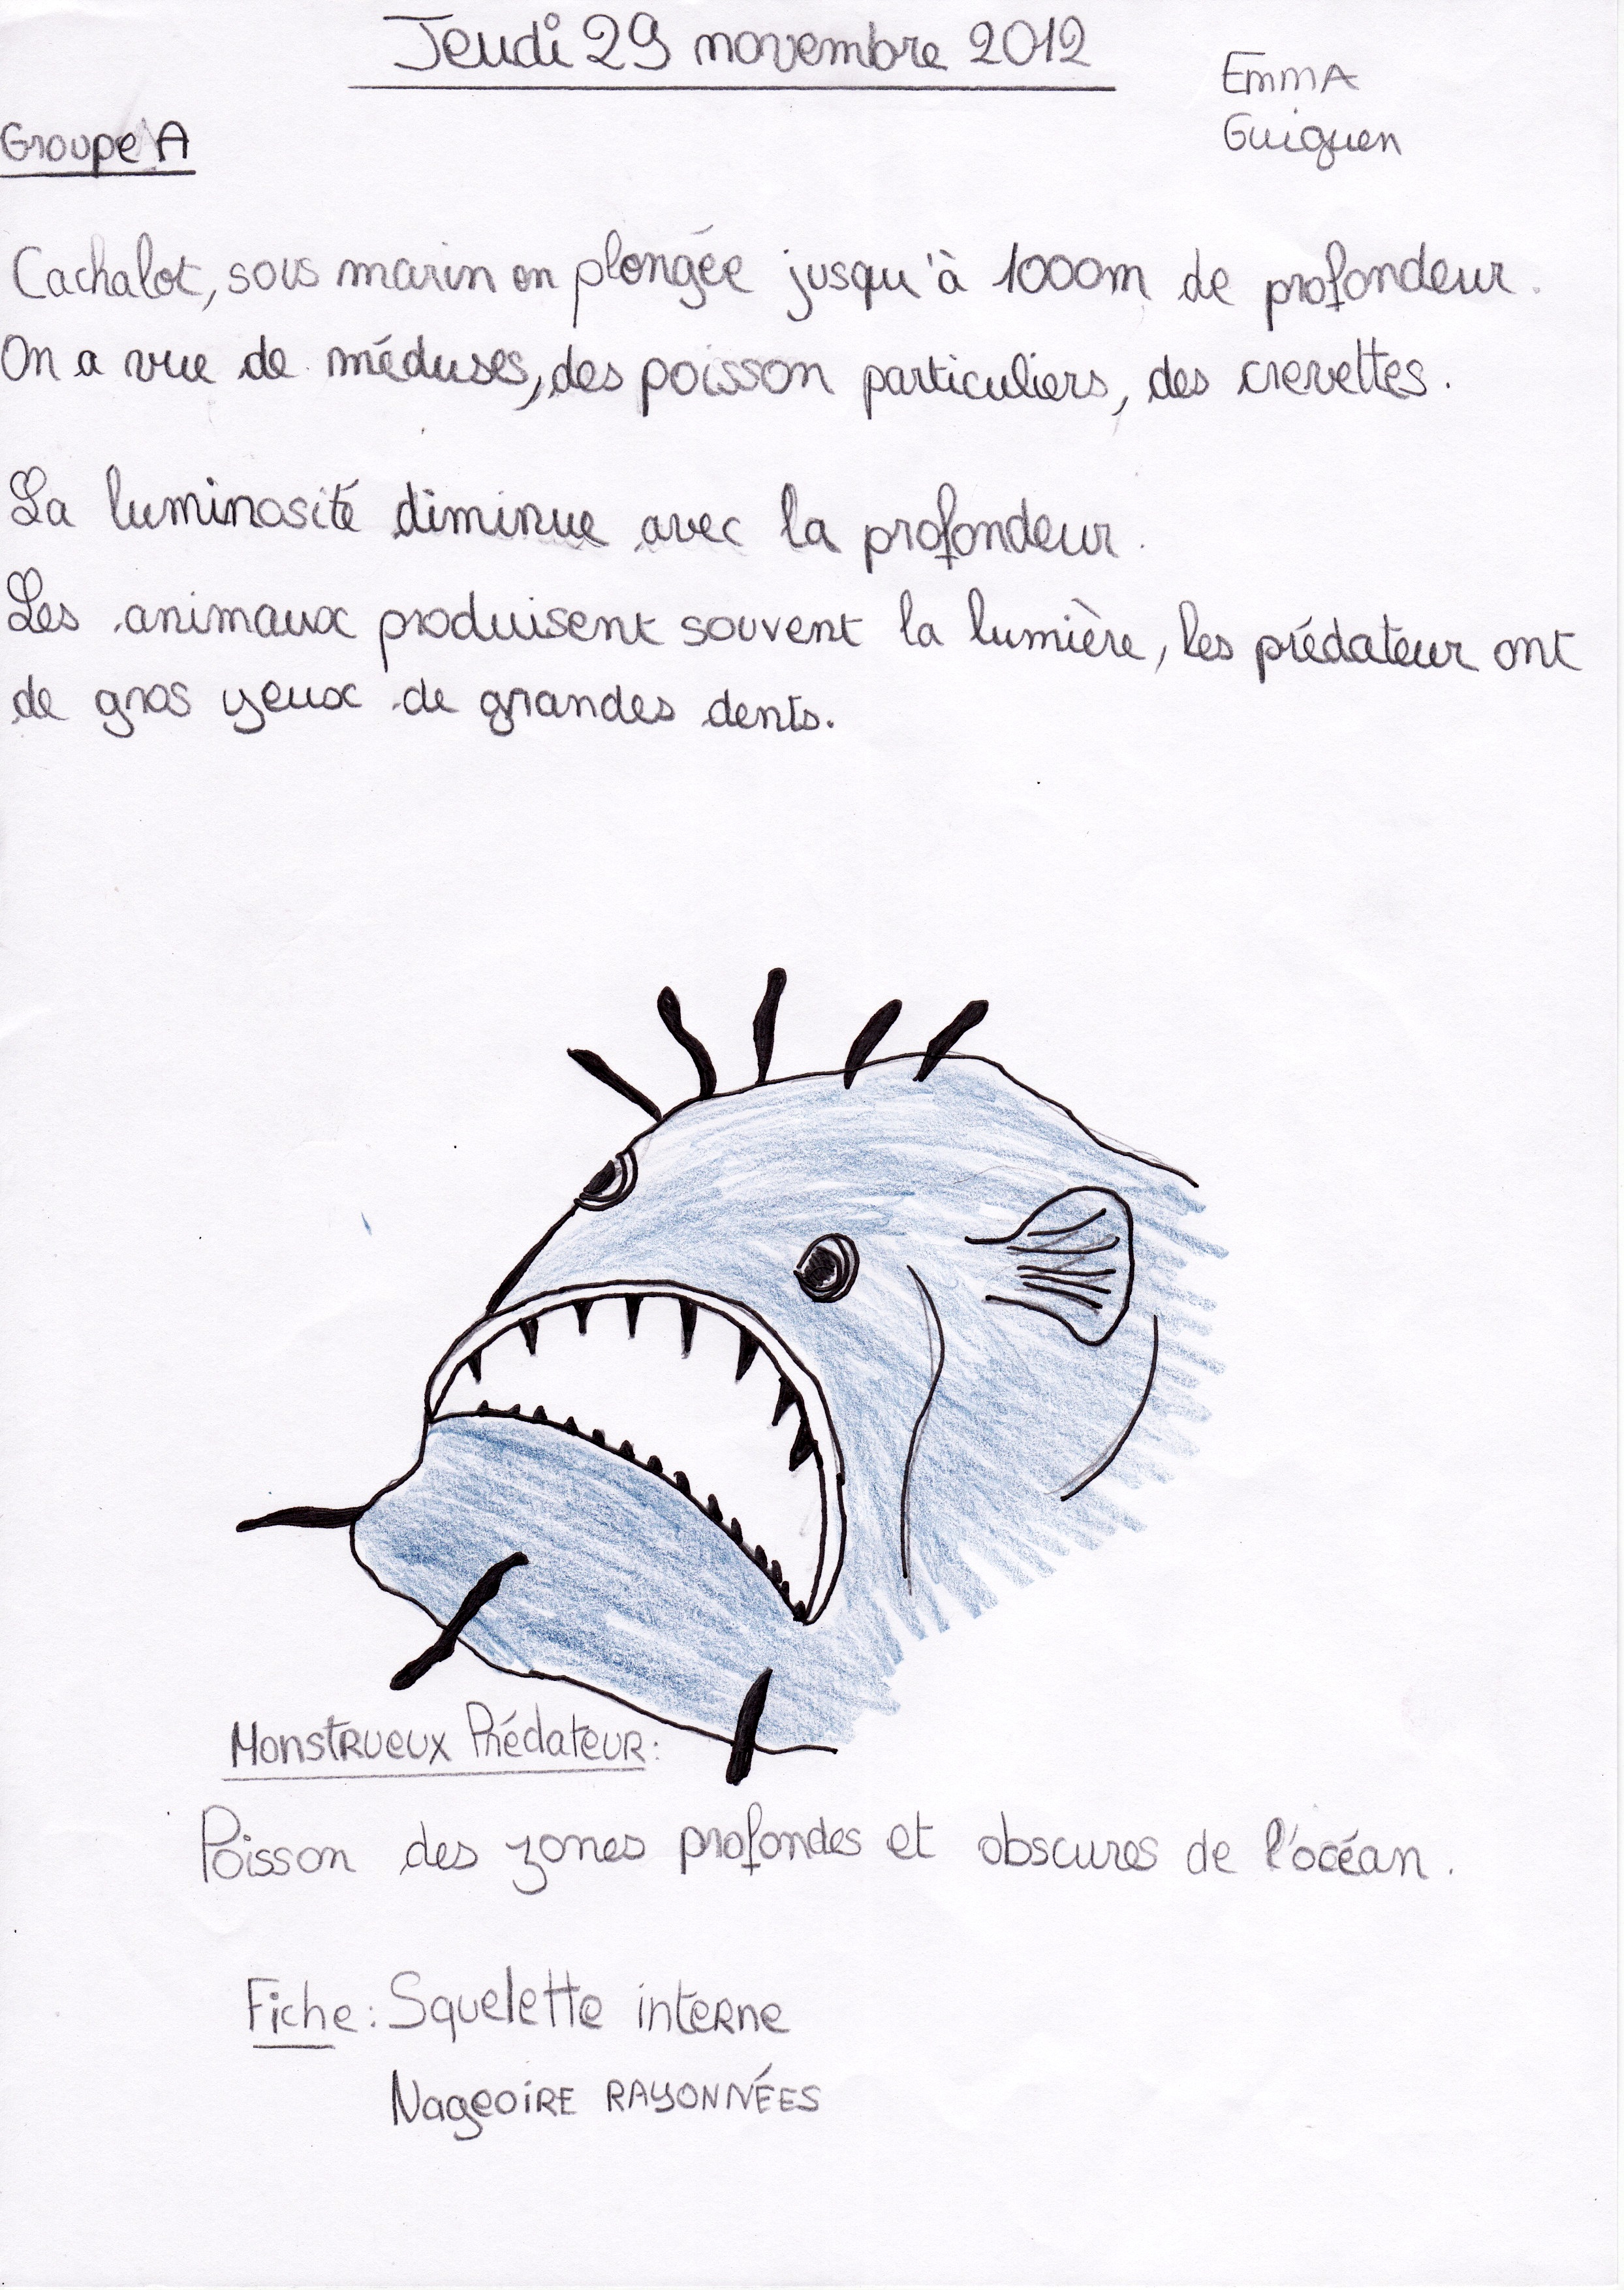 Jeudi 29 novembre 2012
Emma
Guiguen
Groupe A
Cachalot, sous marin en plongée jusqu'à 1000m de profondeur.
On a vue de méduses, des poisson particuliers, des crevettes.
La luminosité diminue avec la profondeur.
Les animaux produisent souvent la lumière, les prédateur ont
de gros yeux de grandes dents.
Monstrueux Prédateur:
Poisson des zones profondes et obscures de l'océan.
Fiche: Squelette interne
Nageoire RAYONNÉES